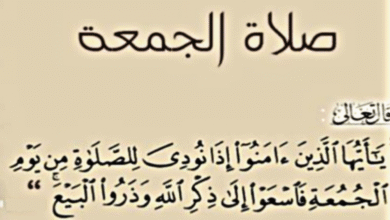 صلاة الجمعة
قال تعالى :
يَٰٓأَيُّهَا ٱلَّذِينَ ءَامَنُوٓا۟ إِذَا نُودِىَ لِلصَّلَوٰةِ مِن يَوْمِ
ٱلْجُمُعَةِ فَٱسْعَوْا۟ إِلَىٰ ذِكْرِ ٱللَّهِ وَذَرُوا۟ ٱلْبَيْعَ ۚ "